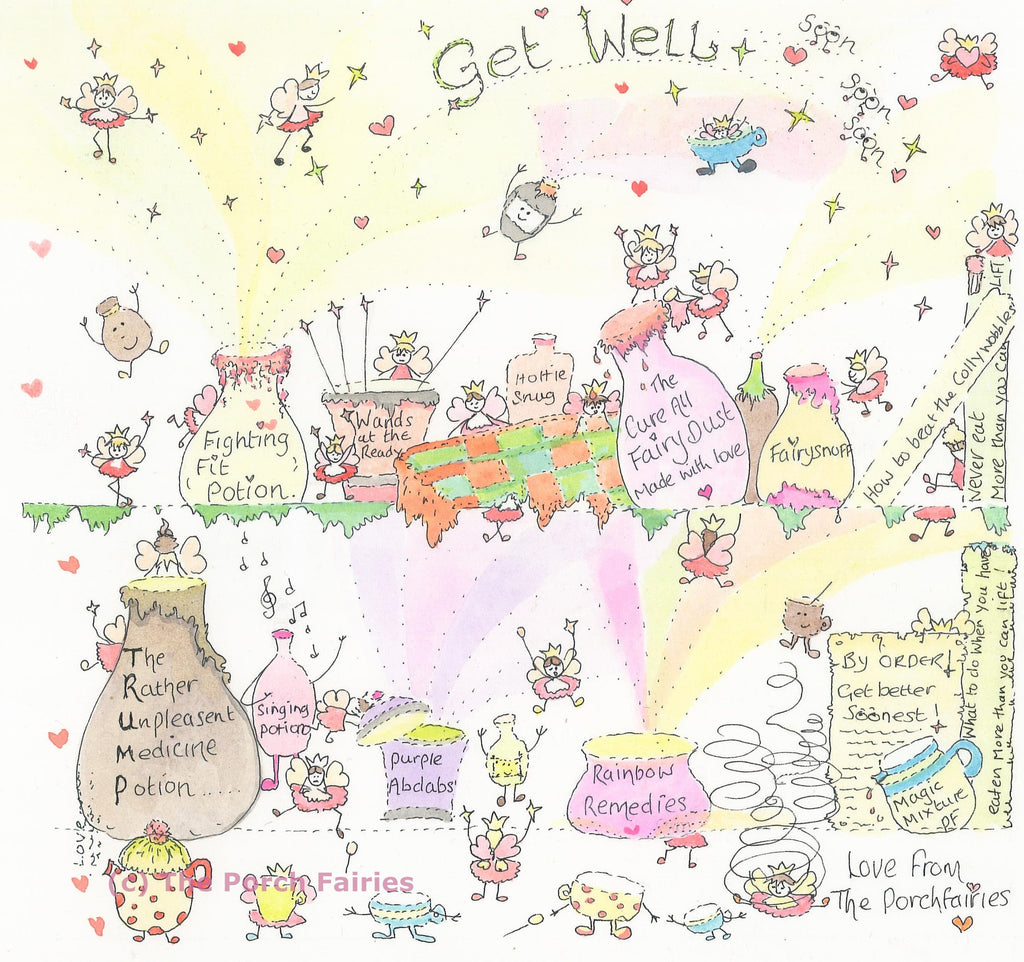 Get Well
Soon
Soon
Soon
Fighting
Fit
Potion
Wands
at the
Ready
Hottie
Snug
The
Cure All
Fairy Dust
Made with love
Fairysnuff
How to beat the Colly Wobbles
Never eat
More than you can
LIFT
The
Rather
Unpleasent
Medicine
Potion.....
Singing
Potion
Purple
Abdabs
Rainbow
Remedies
By ORDER!
Get better
Soonest!
What to do when you have
eaten More than you can lift!
Magic
Mixture
PF
Love
(c) The Porch Fairies
Love From
The Porchfairies